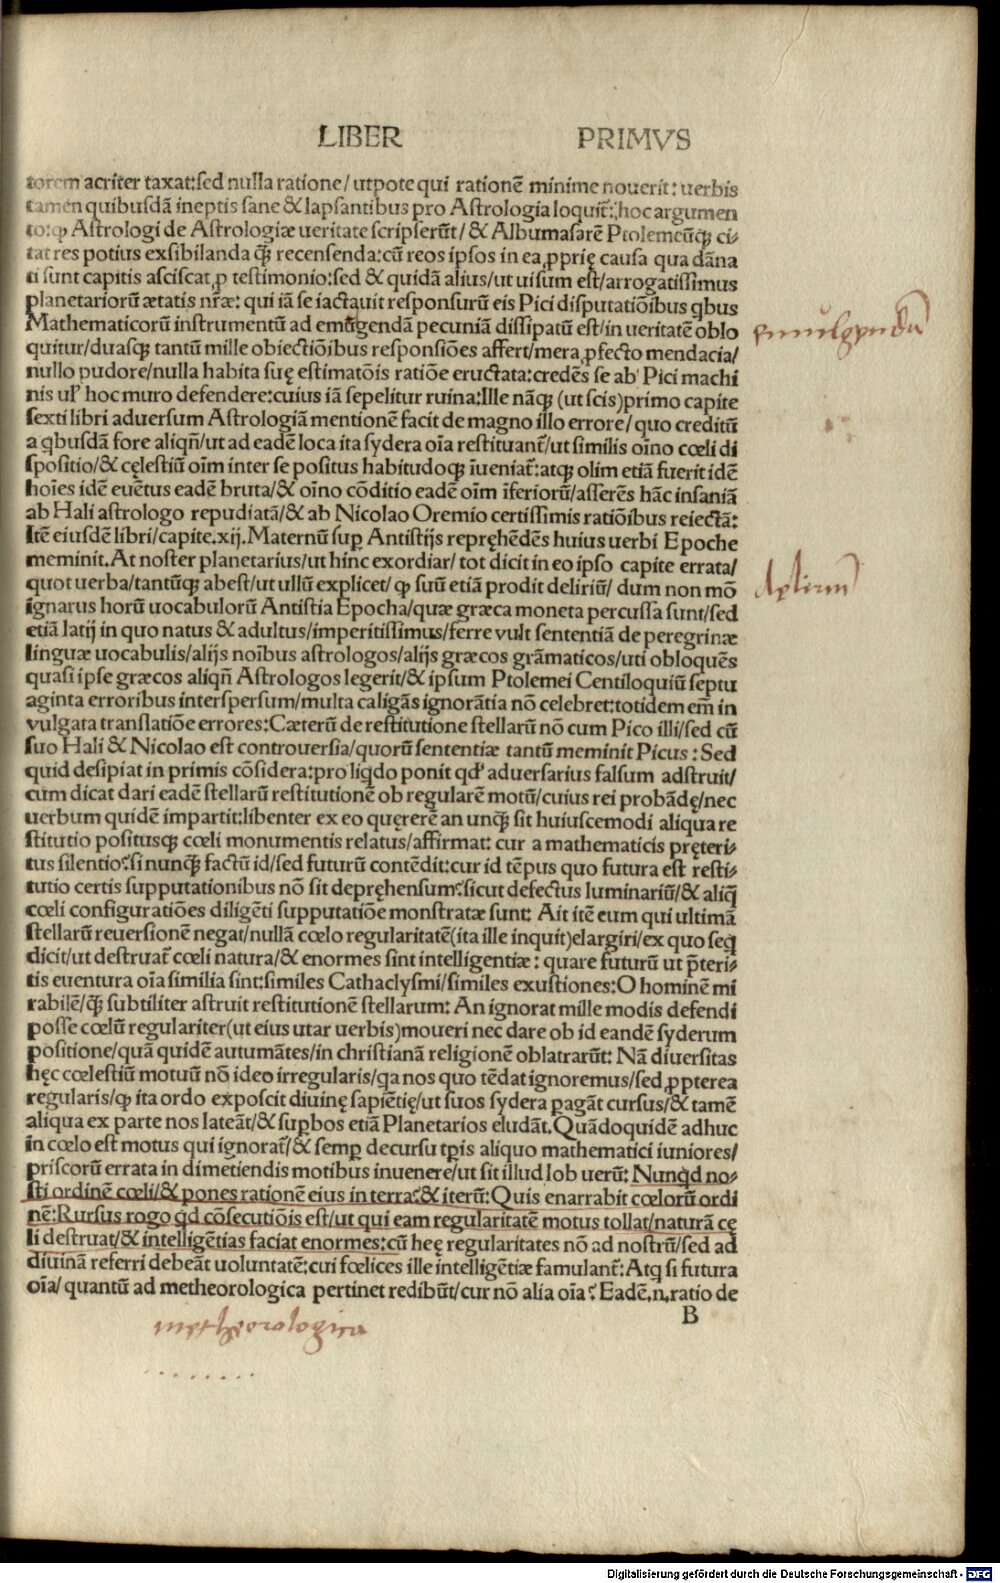 LIBER PRIMVS
torem acriter taxat:sed nulla ratione/utpote qui rationē minime nouerit: uerbis
tamen quibusdā ineptis sane & lapsantibus pro Astrologia loquit̄: hoc argumen
to:ꝙ Astrologi de Astrologiæ ueritate scripserūt/& Albumasarē Ptolemeūq; ci-
tat res potius exsibilanda q̄; recensenda:cū reos ipsos in ea ꝓprię causa qua dāna
ti sunt capitis asciscat ꝓ testimonio:sed & quidā alius/ut uisum est/arrogatissimus
planetariorū ætatis nr̄æ: qui iā se iactauit responsurū eis Pici disputatiōibus qbus
Mathematicorū instrumentū ad emūgendā pecuniā dissipatū est/in ueritatē oblo
quitur/duasq; tantū mille obiectiōibus responsiōes affert/mera ꝓfecto mendacia/
nullo pudore/nulla habita suę estimatōis ratiōe eructata:credēs se ab Pici machi
nis ul' hoc muro defendere:cuius iā sepelitur ruina:Ille nāq; (ut scis)primo capite
sexti libri aduersum Astrologiā mentionē facit de magno illo errore/quo creditū
a qbusdā fore aliqn̄/ut ad eadē loca ita sydera oīa restituant̄/ut similis oīno cœli di
spositio/& cęlestiū oīm inter se positus habitudoq; īueniat̄:atq; olim etiā fuerit idē
hoīes idē euētus eadē bruta/& oīno cōditio eadē oīm īferiorū/asserēs hāc insaniā
ab Hali astrologo repudiatā/& ab Nicolao Oremio certissimis ratiōibus reiectā:
Itē eiusdē libri/capite.xij.Maternū suꝑ Antistijs repręhēdēs huius uerbi Epoche
meminit.At noster planetarius/ut hinc exordiar/tot dicit in eo ipso capite errata/
quot uerba/tantūq; abest/ut ullū explicet/ꝙ suū etiā prodit deliriū/ dum non mō
ignarus horū uocabulorū Antistia Epocha/quæ græca moneta percussa sunt/sed
etiā latij in quo natus & adultus/imperitissimus/ferre vult sententiā de peregrinæ
linguæ uocabulis/alijs noībus astrologos/alijs græcos grāmaticos/uti obloquēs
quasi ipse græcos aliqn̄ Astrologos legerit/& ipsum Ptolemei Centiloquiū septu
aginta erroribus interspersum/multa caligās ignorātia nō celebret:totidem em̄ in
vulgata translatiōe errores:Cæterū de restitutione stellarū nō cum Pico illi/sed cū
suo Hali & Nicolao est controuersia/quorū sententiæ tantū meminit Picus : Sed
quid desipiat in primis cōsidera:pro liqdo ponit qd' aduersarius falsum adstruit/
cum dicat dari eadē stellarū restitutionē ob regularē motū/cuius rei probādę/nec
uerbum quidē impartit:libenter ex eo quęrerē an unq̄; sit huiuscemodi aliqua re
stitutio positusq; cœli monumentis relatus/affirmat: cur a mathematicis pręteri-
tus silentio?si nunq̄; factū id/sed futurū contēdit:cur id tēpus quo futura est resti-
tutio certis supputationibus nō sit depręhensum?sicut defectus luminariū/& aliq̄
cœli configuratiōes diligēti supputatiōe monstratæ sunt: Ait itē eum qui ultimā
stellarū reuersionē negat/nullā cœlo regularitatē(ita ille inquit)elargiri/ex quo seq̄
dicit/ut destruat̄ cœli natura/& enormes sint intelligentiæ : quare futurū ut p̄teri-
tis euentura oīa similia sint:similes Cathaclysmi/similes exustiones:O hominē mi
rabilē/q̄; subtiliter astruit restitutionē stellarum: An ignorat mille modis defendi
posse cœlū regulariter(ut eius utar uerbis)moueri nec dare ob id eandē syderum
positione/quā quidē autumātes/in christianā religionē oblatrarūt: Nā diuersitas
hęc cœlestiū motuū nō ideo irregularis/qa nos quo tēdat ignoremus/sed ꝓpterea
regularis/ꝙ ita ordo exposcit diuinę sapiētię/ut suos sydera pagāt cursus/& tamē
aliqua ex parte nos lateāt/& suꝑbos etiā Planetarios eludāt.Quādoquidē adhuc
in cœlo est motus qui ignorat̄/& semꝑ decursu tꝑis aliquo mathematici iuniores/
priscorū errata in dimetiendis motibus inuenere/ut sit illud Iob uerū: Nunqd no-
sti ordinē cœli/& pones rationē eius in terra?& iterū: Quis enarrabit cœlorū ordi
nē:Rursus rogo qd cōsecutiōis est/ut qui eam regularitatē motus tollat/naturā cę
li destruat/& intelligētias faciat enormes:cū heę regularitates nō ad nostrū/sed ad
diuinā referri debeāt uoluntatē:cui fœlices ille intelligētiæ famulant̄: Atq si futura
oīa/quantū ad metheorologica pertinet redibūt/cur nō alia oīa? Eadē.n.ratio de
B
emulgendā
deliriū
metheorologica
Digitalisierung gefördert durch die Deutsche Forschungsgemeinschaft - DFG